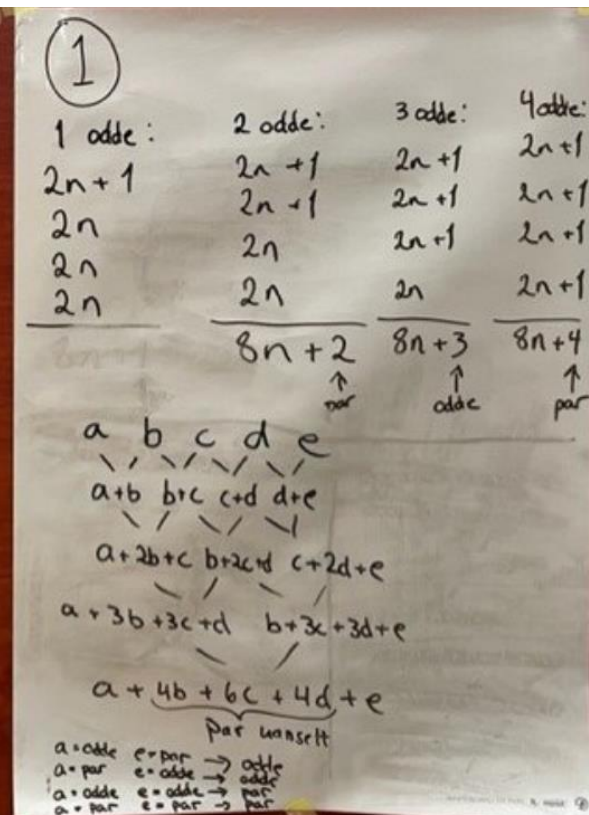 1
1 odde:
2n + 1
2n
2n
2n
2 odde:
2n + 1
2n + 1
2n
2n
8n + 2
↑
par
3 odde:
2n + 1
2n + 1
2n + 1
2n
8n + 3
↑
odde
4 odde:
2n + 1
2n + 1
2n + 1
2n + 1
8n + 4
↑
par
a b c d e
a+b b+c c+d d+e
a+2b+c b+2c+d c+2d+e
a+3b+3c+d b+3c+3d+e
a + 4b + 6c + 4d + e
par uansett
a = odde e = par → odde
a = par e = odde → odde
a = odde e = odde → par
a = par e = par → par